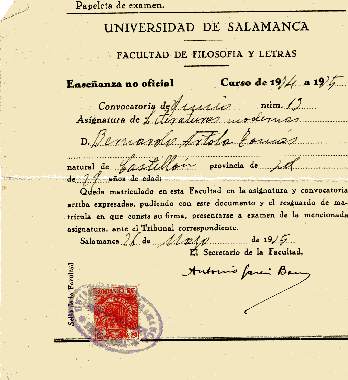 Papeleta de examen.
UNIVERSIDAD DE SALAMANCA
FACULTAD DE FILOSOFIA Y LETRAS
Enseñanza no oficial Curso de 1934 a 1935
Convocatoria de Junio núm. 13
Asignatura de Literaturas modernas
D. Bernardo Artola Tomás
natural de Castellón provincia de id
de años de edad:
Queda matriculado en esta Facultad en la asignatura y convocatoria
arriba expresadas, pudiendo con este documento y el resguardo de ma-
trícula en que consta su firma, presentarse a examen de la mencionada
asignatura, ante el Tribunal correspondiente.
Salamanca de de 1935
El Secretario de la Facultad,
Antonio García
Sello de la Facultad